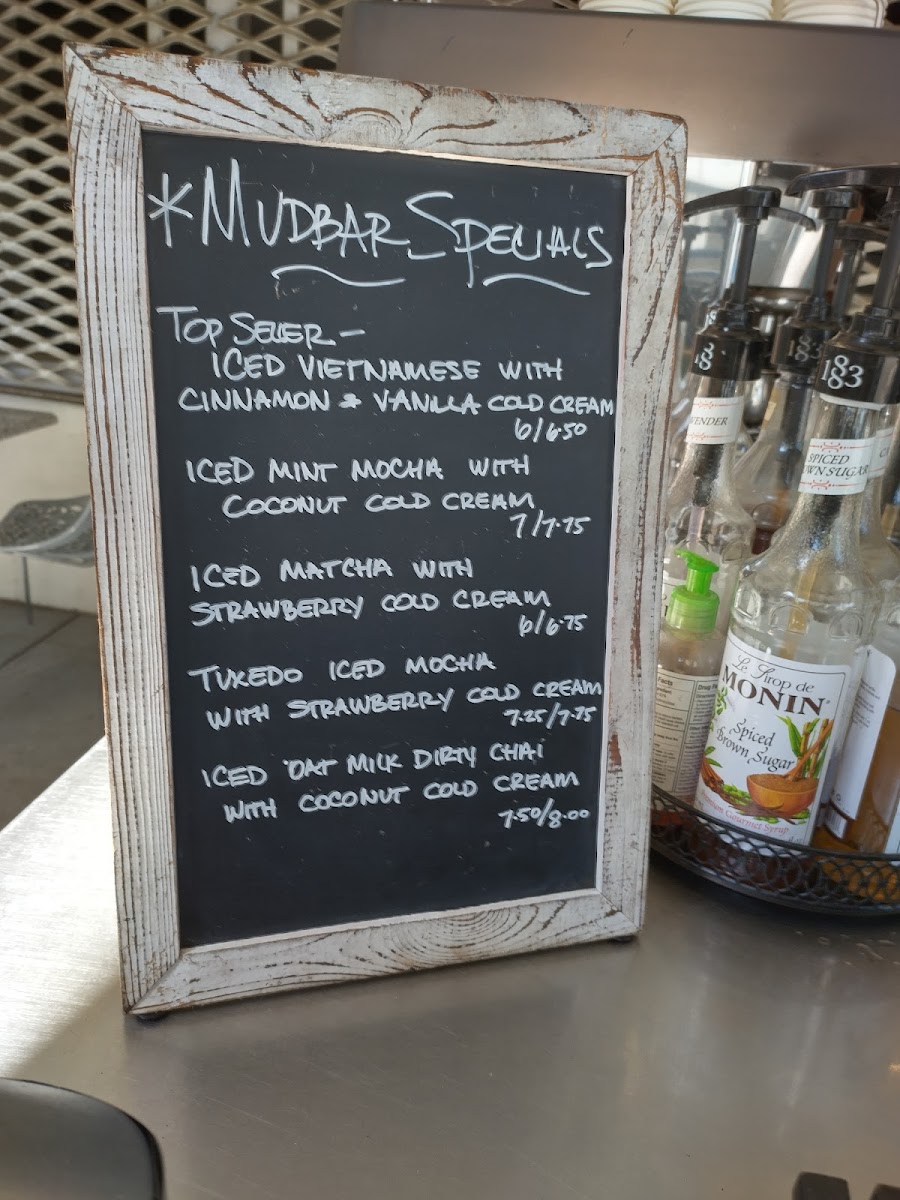 *MUDBAR SPECIALS
TOP SELLER -
ICED VIETNAMESE WITH
CINNAMON & VANILLA COLD CREAM
6/6.50
ICED MINT MOCHA WITH
COCONUT COLD CREAM
7/7.75
ICED MATCHA WITH
STRAWBERRY COLD CREAM
6/6.75
TUXEDO ICED MOCHA
WITH STRAWBERRY COLD CREAM
7.25/7.75
ICED OAT MILK DIRTY CHAI
WITH COCONUT COLD CREAM
7.50/8.00
1883
VENDER
SPICED
WN SUGAR
Le Sirop de
MONIN
Spiced
Brown Sugar
Gourmet Syrup
Facts